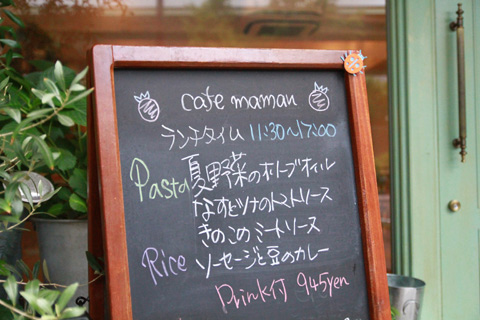 cafe maman
ランチタイム 11:30〜17:00
Pasta 夏野菜のオリーブオイル
なすとツナのトマトソース
きのこのミートソース
Rice ソーセージと豆のカレー
Drink付 945yen